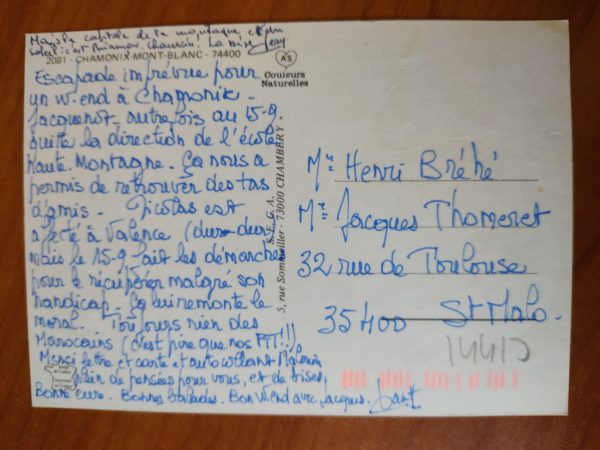 Mais la capitale de la montagne et du
soleil c'est Briançon. Chauvin! La bise
2081 - CHAMONIX-MONT-BLANC - 74400
AS
Couleurs
Naturelles
Escapade imprévue pour
un w.end à Chamonix -
Jacquenot - autrefois au 15-9.
quitte la direction de l'école
Haute Montagne - Ça nous a
permis de retrouver des tas
d'amis - Nicolas est
affecté à Valence (dur-dur)
mais le 15-9 fait les démarches
pour le récupérer malgré son
handicap - Ça lui remonte le
moral. Toujours rien des
Marocains (c'est pire que nos PTT!!)
Merci lettre et carte et autocollant
plein de pensées pour vous, et de bises,
Bonne cure. Bonnes balades. Bon w.end avec Jacques.
S.E.G.A.
5, rue Sommeiller - 73000 CHAMBERY
Mr Henri Bréhé
Mr Jacques Thomeret
32 rue de Toulouse
35400 St Malo.
14410